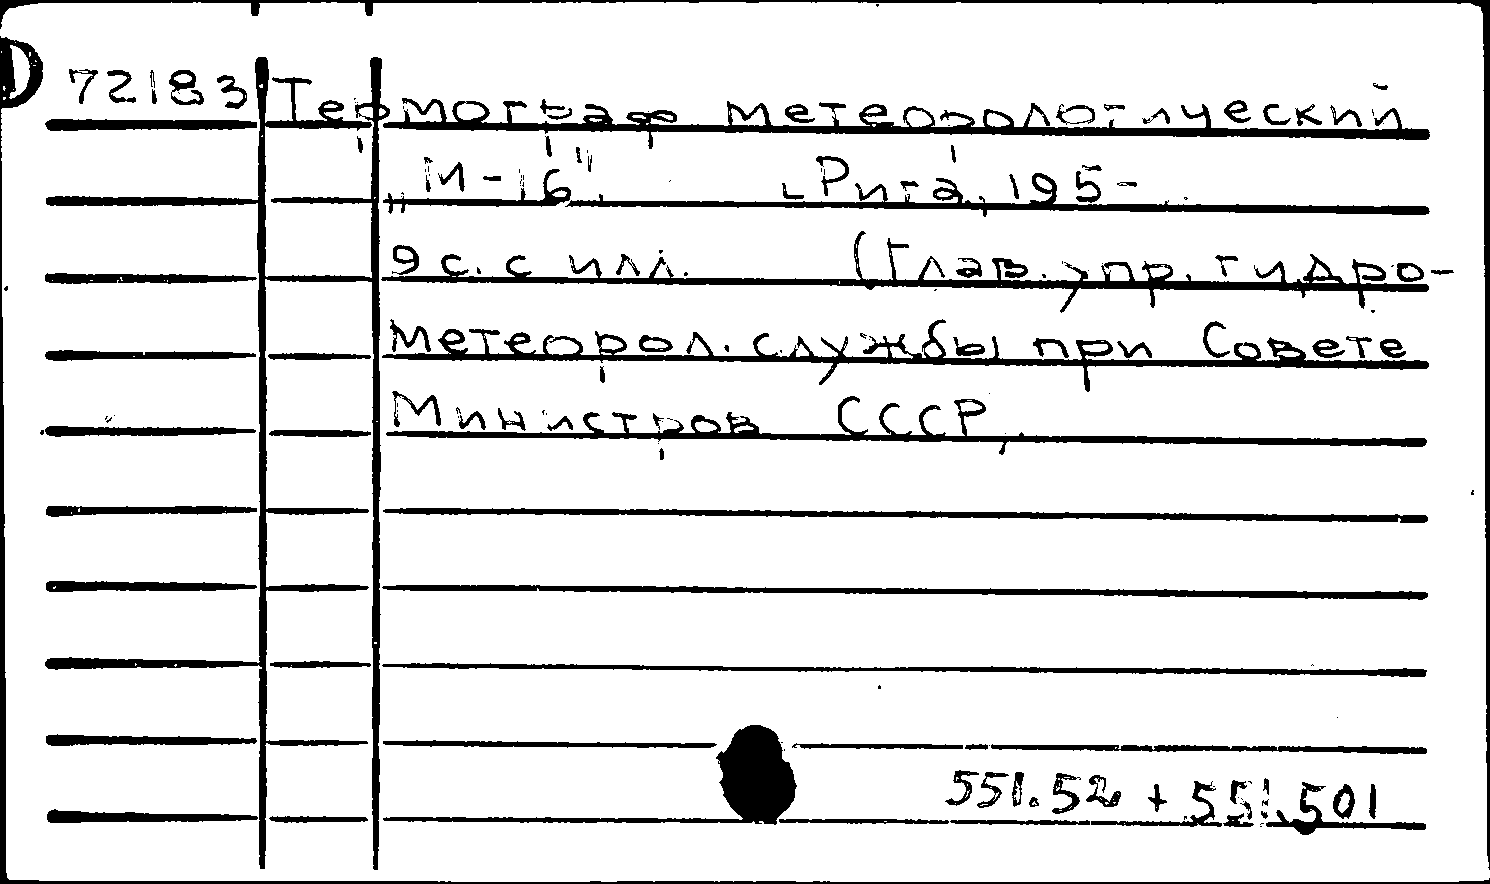 D 72183 Термограф метеорологический
„М-16". [Рига, 195-.
9 с. с илл. (Глав. упр. гидро-
метеорол. службы при Совете
Министров СССР,
551.52 + 551.501